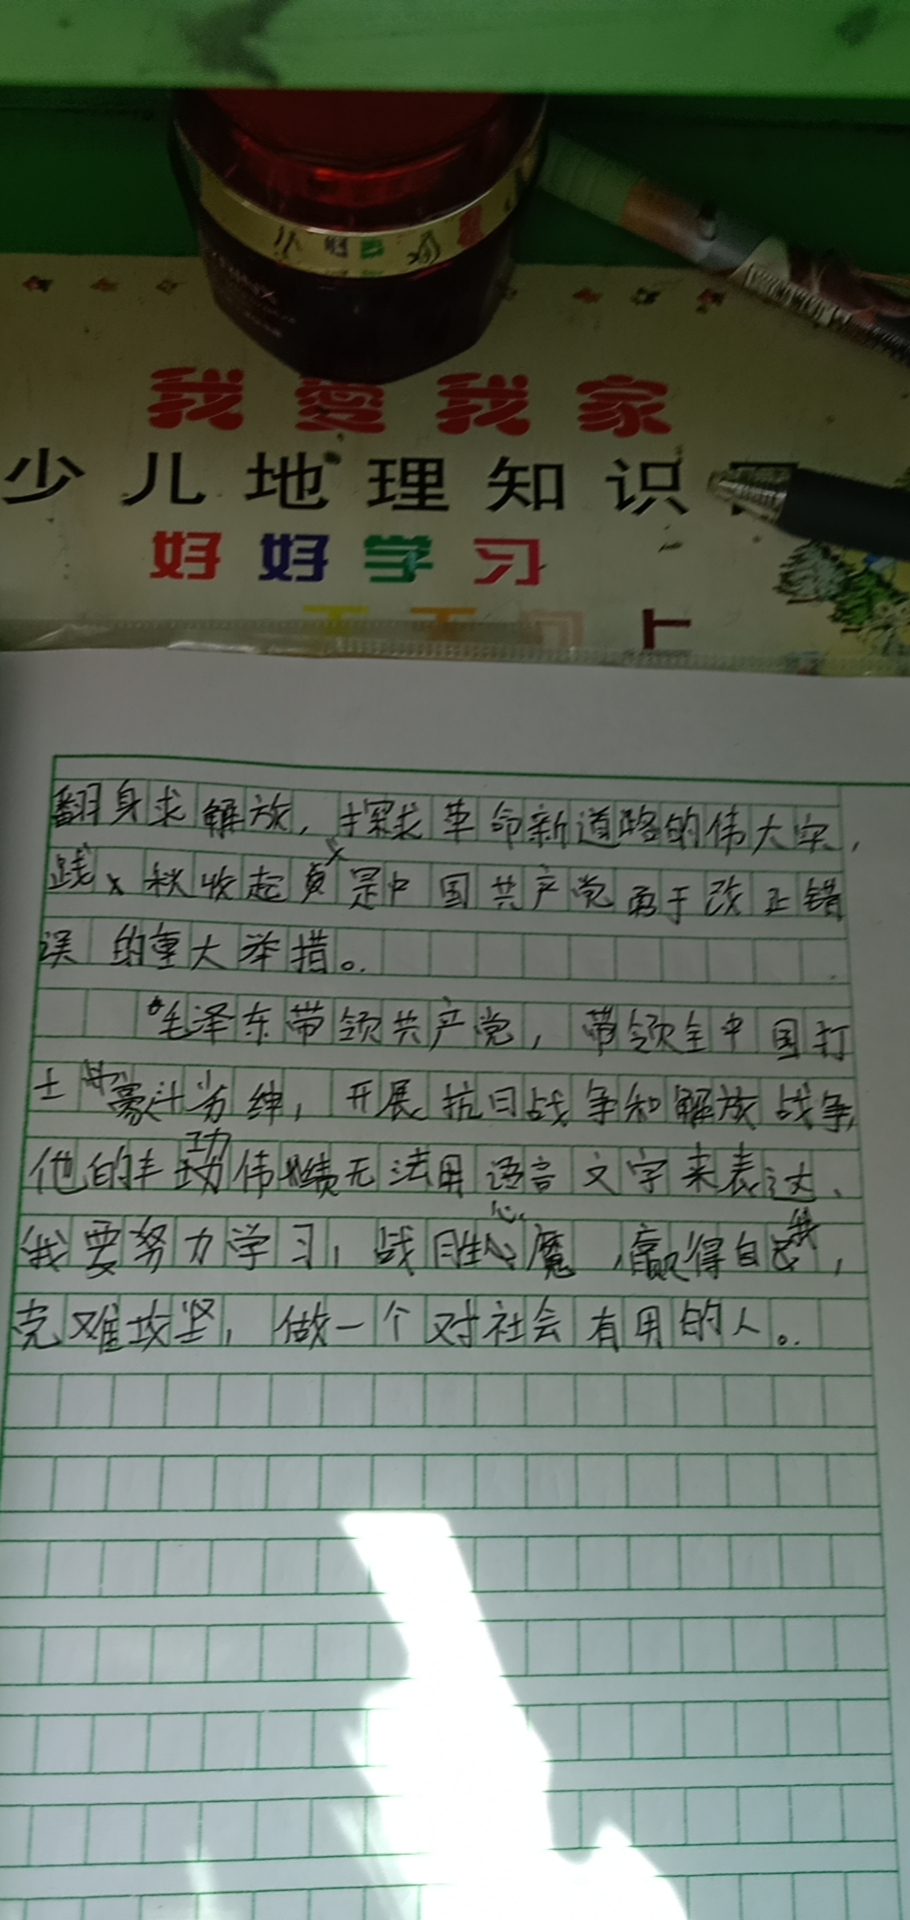 我爱我家
少儿地理知识
好好学习
翻身求解放，探求革命新道路的伟大实，
践，秋收起义是中国共产党勇于改正错
误的重大举措。
毛泽东带领共产党，带领全中国打
土豪斗劣绅，开展抗日战争和解放战争，
他的丰功伟绩无法用语言文字来表达、
我要努力学习，战胜心魔，赢得自我，
克难攻坚，做一个对社会有用的人。